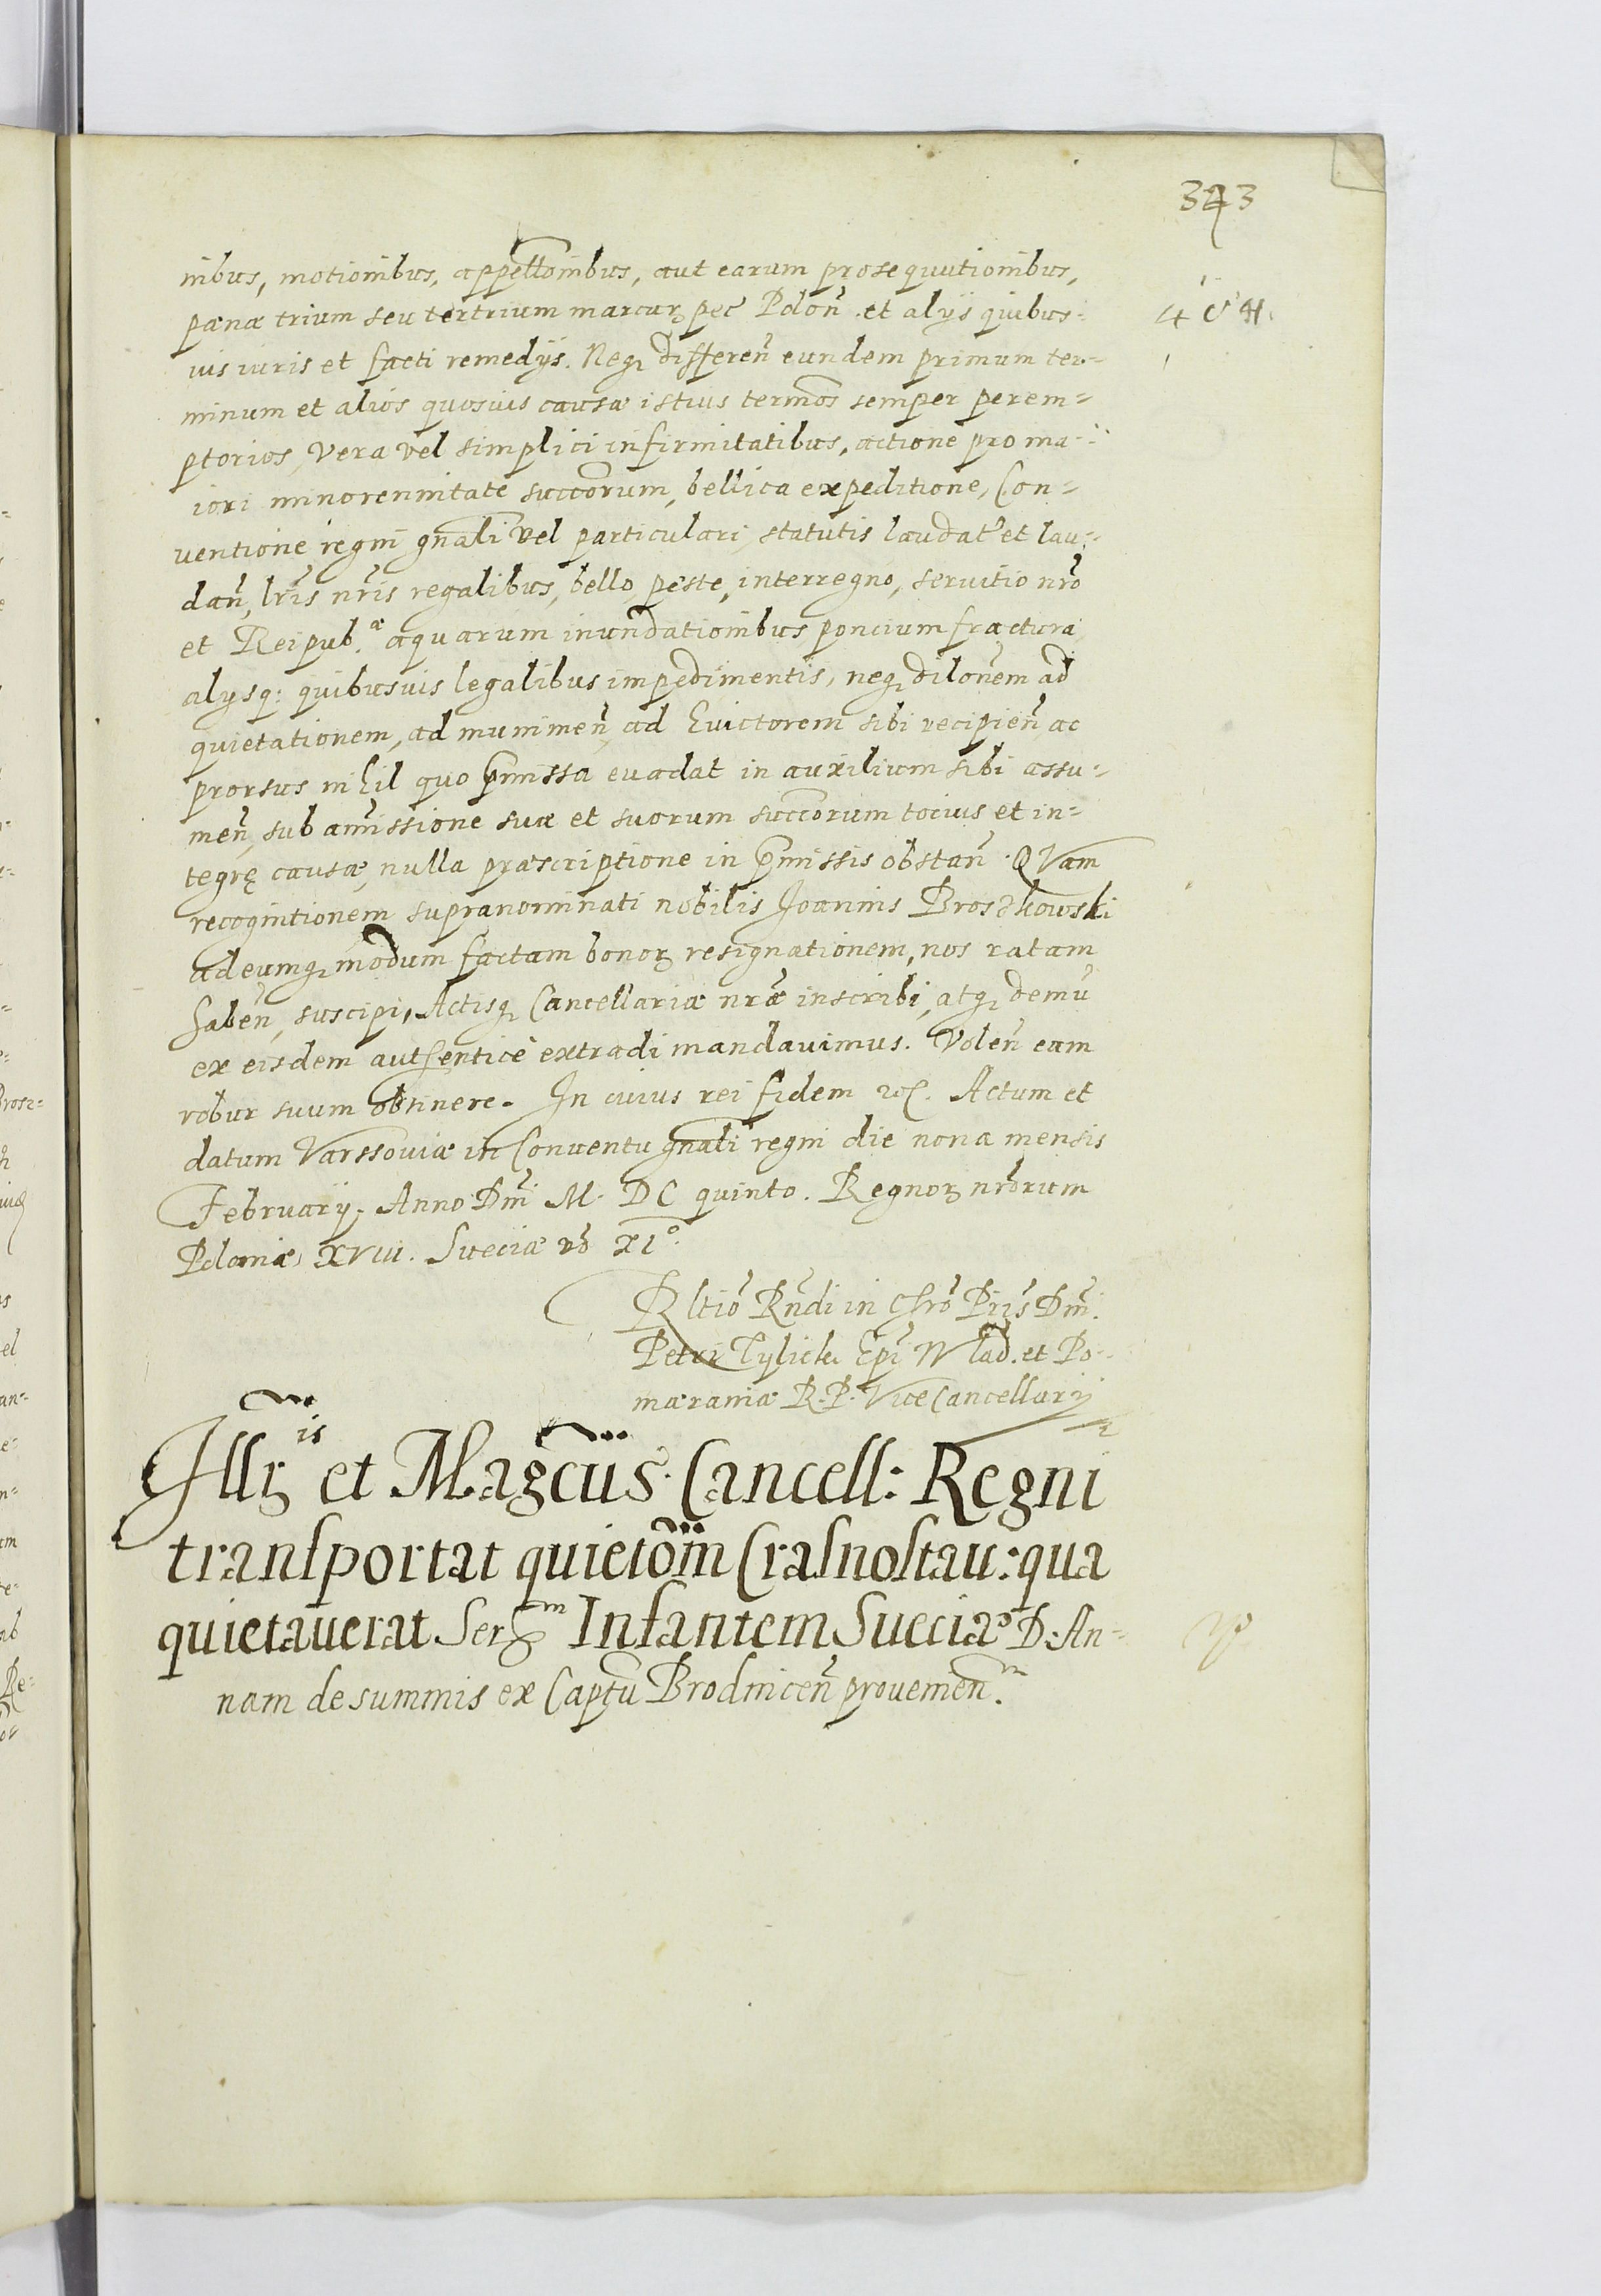 343
nibus, motionibus, appellõnibus, aut earum prosequutionibus,
pænæ trium seu ter trium marcarꝫ pec̃ Polon̄. et alijs quibus=
uis iuris et facti remedijs. Neqꝫ differeñ eundem primum ter=
minum et alios quosuis causæ istius termõs semper perem=
ptorios, vera vel simplici infirmitatibus, actione pro ma=
iori minorennitate succõrum, bellica expeditione, Con=
ventione regni gñali vel particulari, statutis laudat̃ et lau=
dañ, lr̃is nr̃is regalibus, bello, peste, interregno, seruitio nr̃o
et Reipub.æ aquarum inundationibus poncium fractura
alysq: quibusuis legalibus impedimentis, neqꝫ dilõnem ad
quietationem, ad munimeñ, ad Euictorem sibi recipieñ ac
prorsus nihil quo p̃missa euadat in auxilium sibi assu=
meñ, sub amissione suæ et suorum succõrum tocius et in=
tegrę causæ, nulla præscriptione in p̃missis obstañ. QVam
recognitionem supranominati nobilis Joannis Broszkowski
ad eumqꝫ modum factam bonorꝫ resignationem, nos ratam
habeñ, suscipi, Actisqꝫ Cancellariæ nr̃æ inscribi, atqꝫ demũ
ex eisdem authenticè extradi mandauimus. Voleñ eam
robur suum obtinere. In cuius rei fidem etc. Actum et
datum Varssouiæ in Conuentu gñali regni die nona mensis
February. Anno Dm̃i M. DC quinto. Regnorꝫ nr̃orum
Poloniæ XVIII. Sueciæ võ XIº.
Rltiõ Rñdi in Chrõ Pr̃is Dñi.
Petri Tylicki Ep̃i Wlad. et Po=
mæraniæ R. P. ViceCancellarij
Illrꝫis et Magcũs Cancell: Regni
transportat quietõm Crasnostau: qua
quietauerat Serꝫm Infantem Sueciæ D: An=
nam de summis ex Captũ Brodniceñ proueñieñ.m